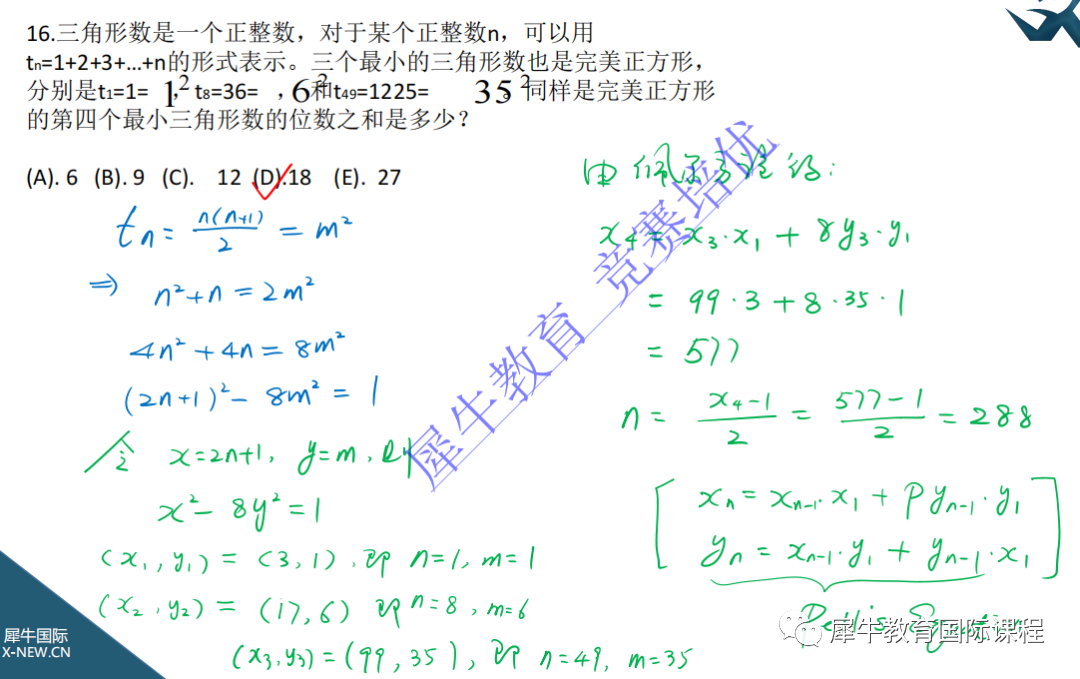 16.三角形数是一个正整数，对于某个正整数n，可以用
tn=1+2+3+...+n的形式表示。三个最小的三角形数也是完美正方形，
分别是t₁=1= 1², t₈=36= ,6²和t₄₉=1225= 35².同样是完美正方形
的第四个最小三角形数的位数之和是多少？
(A). 6 (B). 9 (C). 12 (D).18 (E). 27
tn = n(n+1)/2 = m²
⇒ n²+n = 2m²
4n²+4n = 8m²
(2n+1)² - 8m² = 1
令 x=2n+1, y=m, 则
x² - 8y² = 1
(x₁,y₁) = (3,1), 即 n=1, m=1
(x₂,y₂) = (17,6) 即 n=8, m=6
(x₃,y₃) = (99,35), 即 n=49, m=35
由佩尔方程得:
x₄ = x₃·x₁ + 8y₃·y₁
= 99·3 + 8·35·1
= 577
n = x₄-1/2 = 577-1/2 = 288
xn = xn-1·x₁ + Pyn-1·y₁
yn = xn-1·y₁ + yn-1·x₁
犀牛教育 竞赛培优
犀牛教育国际课程
犀牛国际
X-NEW.CN